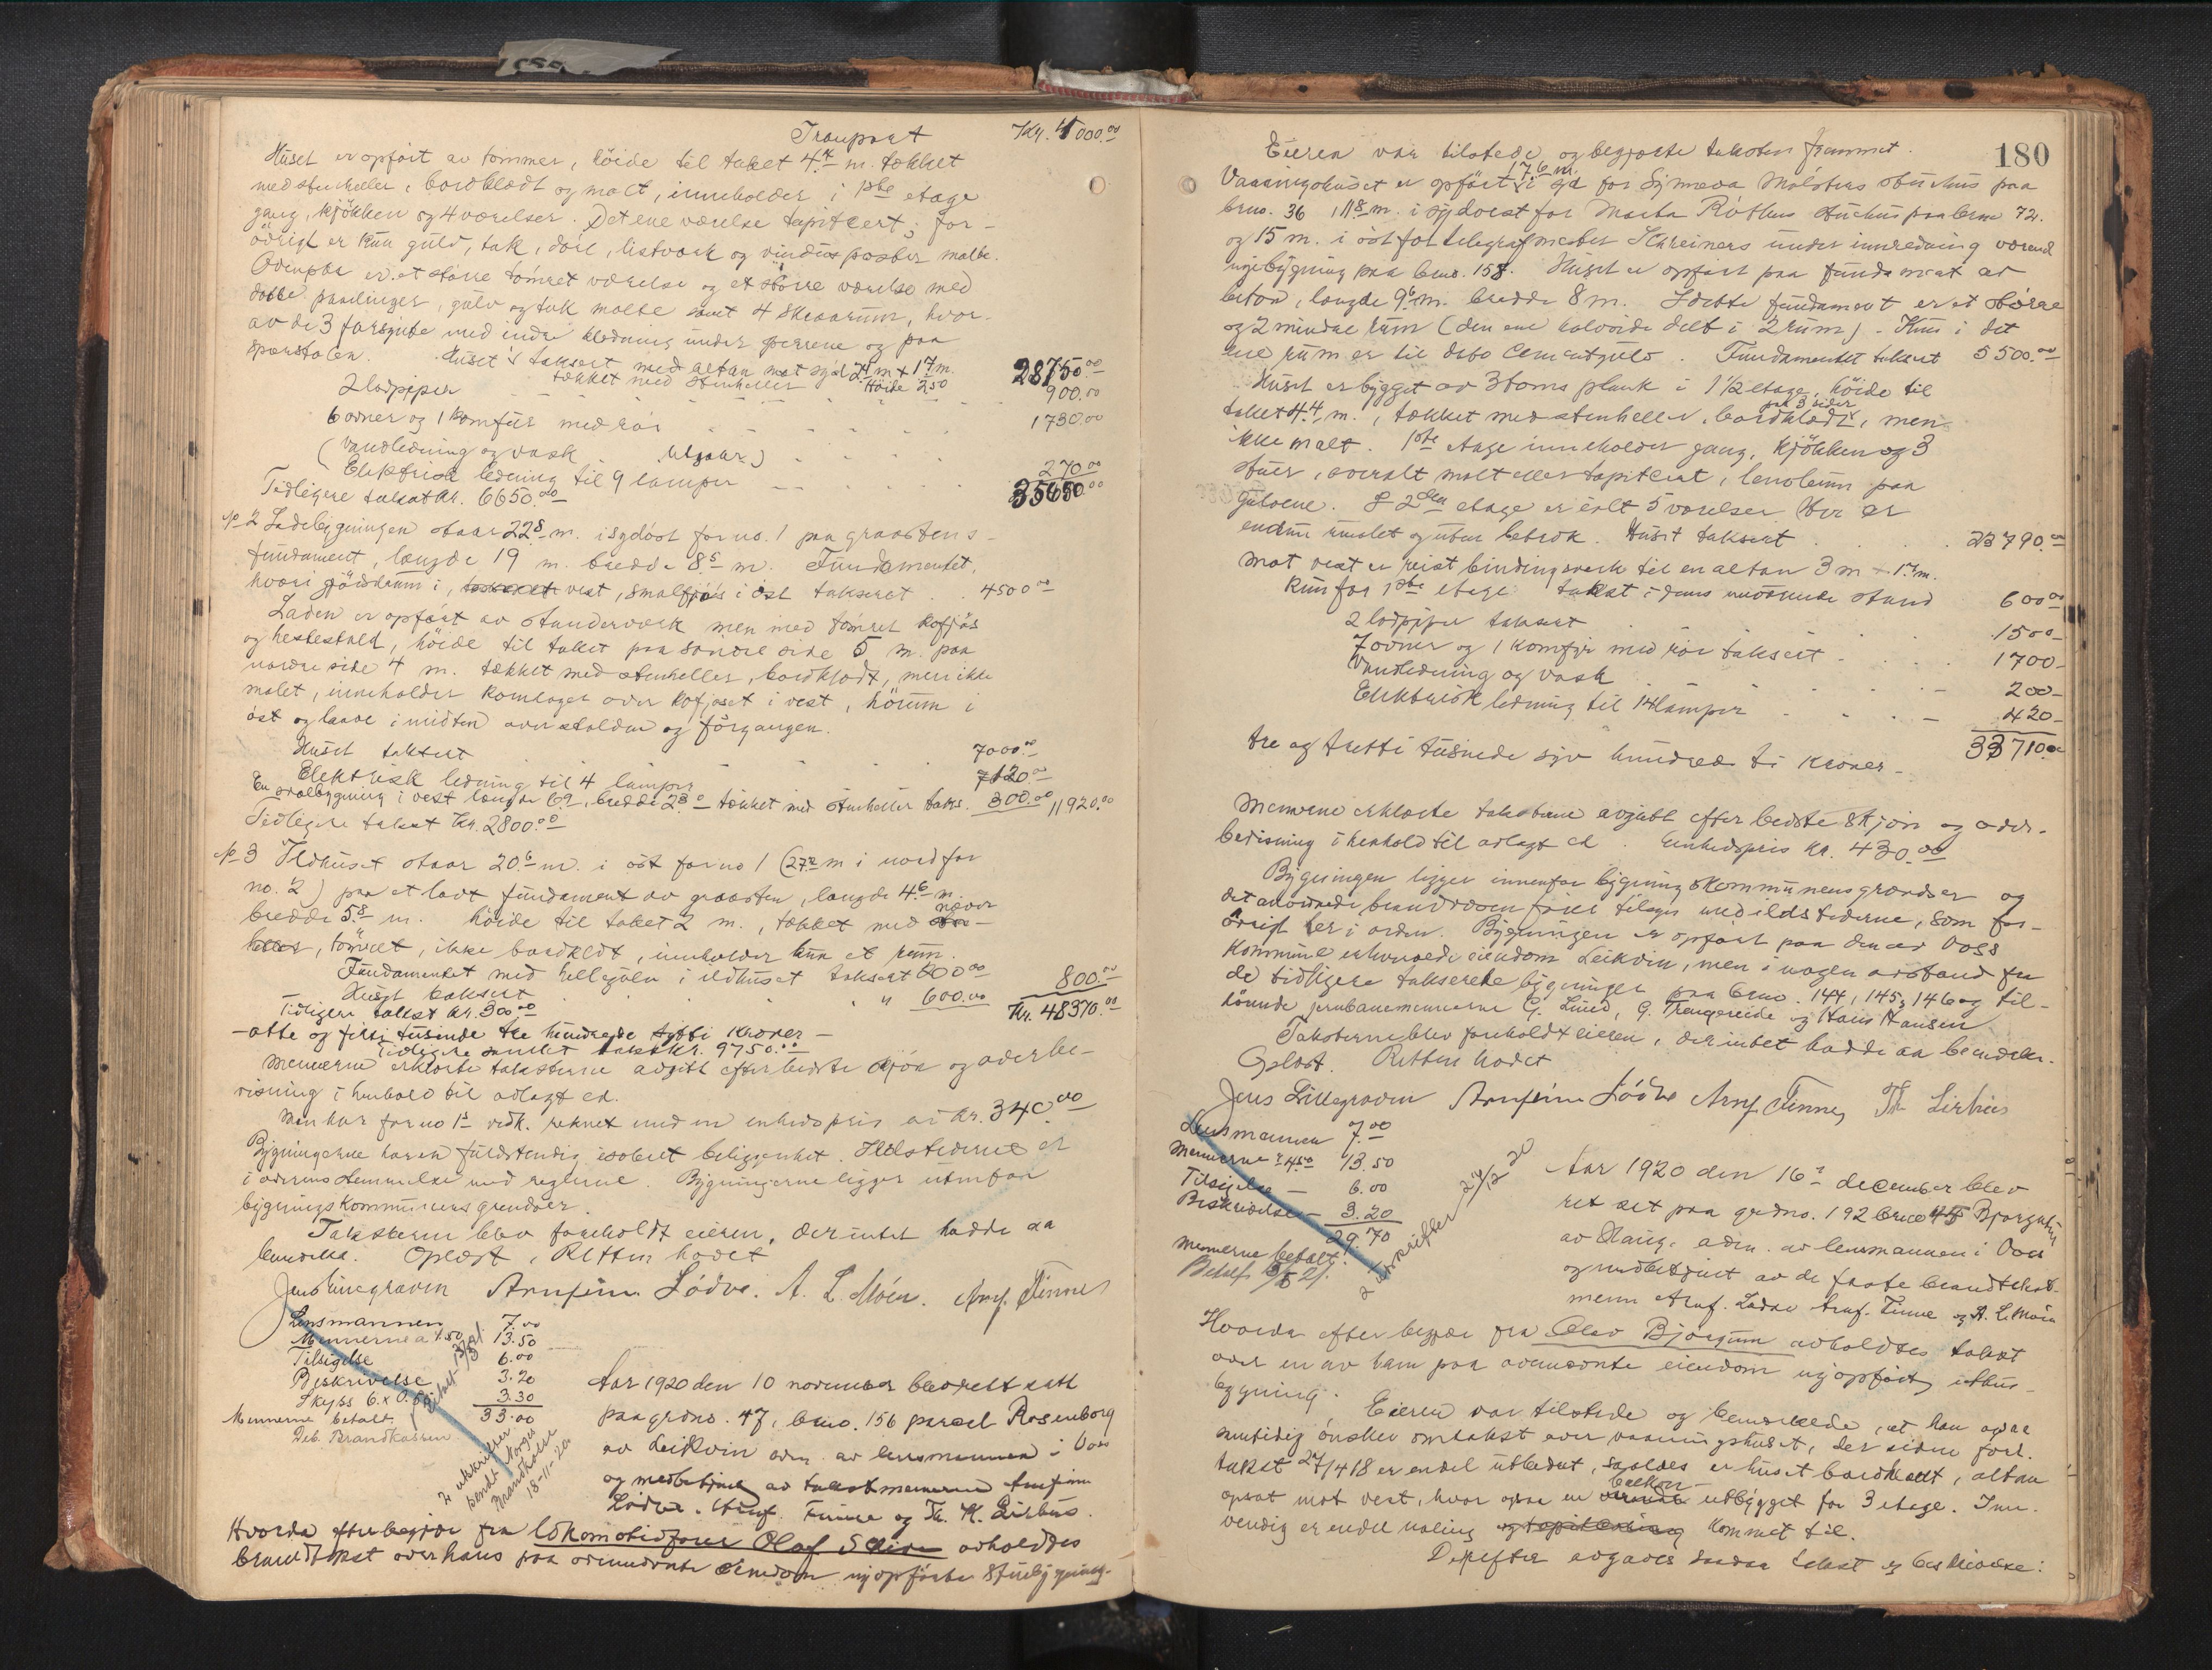 Transport Kr. 4000.00
Huset er opført av tømmer, høide til taket 4.4 m. tækket
med stenheller, bordklædt og malt, inneholder i 1ste etage
gang, kjøkken og 4 værelser. Det ene værelse tapitsert; for-
øvrigt er kun gulv, tak, dører, listverk og vinduesposter malte.
Ovenpaa er et større tømret værelse og et større værelse med
doble panelinger, gulv og tak malte samt 4 skraarum, hvor-
av de 3 forsynte med indre klædning under sperrene og paa
sperstolen. Huset takseret med altan mot syd 2.4 m x 1.7 m.
tækket med stenheller Høide 2.50 28750.00
2 lodpiper 900.00
6 ovner og 1 komfur med rør 1730.00
(Vandledning og vask utgaar)
Elektrisk ledning til 9 lamper 270.00
Tidligere takst kr. 6650.00 35650.00
No 2 Ladebygningen staar 22.8 m. i sydøst for no. 1 paa graastens-
fundament, længde 19 m. bredde 8.5 m. Fundamentet,
hvori gjødselrum i vest, smalfjøs i øst takseret 4500.00
Laden er opført av stenderverk men med tømret kofjøs
og hestestald, høide til taket paa søndre side 5 m. paa
nordre side 4 m. tækket med stenheller, bordklædt, men ikke
malet, inneholder kornlager over kofjøset i vest, hørum i
øst og laave i midten over stalden og forgangen.
Huset taksert 7000.00
Elektrisk ledning til 4 lamper 120.00
En svalbygning i vest længde 6.9, bredde 2.30 tækket med stenheller taks. 300.00 11920.00
Tidligere takst Kr. 2800.00
No 3 Ildhuset staar 20.6 m. i øst for no 1 (27.2 m i nord for
no. 2) paa et lavt fundament av graasten, længde 4.6 m.
bredde 5.8 m. høide til taket 2 m., tækket med never
tømret, ikke bordkldt, inneholder kun et rum.
Fundamentet med hellegulv i ildhuset taksert 200.00
Huset taksert 600.00 800.00
Tidligere takst kr. 300.00 Kr. 48370.00
— otte og firti tusinde tre hundrede sytti kroner —
Tidligere samlet takst kr. 9750.00
Mennerne erklærte taksterne avgitt efter bedste skjøn og overbe-
visning i henhold til avlagt ed.
Man har for no 1s vedk. reknet med en enhedspris av kr. 340.00
Bygningerne har en fuldstendig isoleret beliggenhet. Ildstederne er
i overensstemmelse med reglerne. Bygningerne ligger utenfor
bygningskommunens grendser.
Taksterne blev foreholdt eieren, der intet hadde aa
bemerke. Oplæst, Retten hævet
Jens Lillegraven Arnfinn Lødve. A. L. Móen. Arnf. Finne
Lensmannen 7.00
Mennerne a 4.50 13.50
Tilsigelse 6.00
Beskrivelse 3.20
Skyss 6 x 0.55 3.30
33.00
Mennerne betalt
Deb. Brandkassen
2 utskrifter
sendt Norges
Brandkasse
18-11-20
Aar 1920 den 10 november blev rett satt
paa grdno. 47, brno. 156 parcel Rosenborg
av Leikvin adm. av lensmannen i Voss
og medbetjent av takstmennerne Arnfinn
Lødve. Arnf. Finne og Th. H. Lirhus.
Hvorda efter begjær fra lokomotivfører Olaf avholddes
brandtakst over hans paa ovennevnte eiendom nyopførte stuebygning.
180
Eieren var tilstede og begjærte taksten fremmet.
Vaaningshuset er opført 17.6 m. i syd for Synneva Mølsters stuehus paa
brno. 36, 11.8 m. i sydvest for Marta Røthes stuehus paa brno 72.
og 15 m. i øst for telegrafmester Schreiners under innredning værend
nyebygning paa brno. 158. Huset er opført paa fundament av
beton, længde 9.6 m. bredde 8 m. I dette fundament er et større
og 2 mindre rum (den ene halvside delt i 2 rum). Kun i det
ene rum er til dato cementgulv. Fundamentet taksert 5500.00
Huset er bygget av 3 toms plank i 1 1/2 etage, høide til
taket 4.4 m., tækket med stenheller, bordklædt paa 3 sider, men
ikke malt. 1ste etage inneholder gang, kjøkken og 3
stuer, overalt malt eller tapitsert, linoleum paa
gulvene. I 2den etage er ialt 5 værelser Her er
endnu umalet og uten betræk. Huset taksert 23790.00
Mot vest er reist bindingsverk til en altan 3 m x 1.7 m.
kun for 1ste etage takst i dens nuværende stand 600.00
2 lodpiper taksert 1500-
7 ovner og 1 komfyr med rør taksert 1700-
Vandledning og vask 200-
Elektrisk ledning til 14 lamper 420-
33710.00
tre og tretti tusinde syv hundred ti kroner -
Mennerne erklærte taksterne avgitt efter bedste skjøn og over-
bevisning i henhold til avlagt ed. Enhedspris kr. 430.00
Bygningen ligger innenfor bygningskommunens grændser og
det anordnede brandvæsen fører tilsyn med ildstederne, som for-
øvrigt her i orden. Bygningen er opført paa den av Voss
kommune erhvervede eiendom Leikvin, men i nogen avstand fra
de tidligere takserete bygninger paa brno. 144, 145, 146 og til-
hørende jernbanemennerne G. Lund, G. Trengereide og Hans Hansen
Taksterne blev foreholdt eieren, der intet hadde aa bemerke.
Oplæst. Retten hævet
Jens Lillegraven Arnfinn Lødve Arnf Finne, Th Lirhus
Lensmannen 7.00
Mennerne a 4.50 13.50
Tilsigelse — 6.00
Beskrivelse — 3.20
29.70
Mennerne betalt
2 utskrifter 24/12 20
Aar 1920 den 16s december blev
ret set paa grdno. 192 brno 44 Bjørgum
av Haug. adm. av lensmannen i Voss
og medbetjent av de faste brandtakst-
menn Arnf. Lødve Arnf. Finne og A. L. Móen
Hvorda efter begjær fra Olav Bjørgum avholdtes takst
over en av ham paa ovennævnte eiendom nyopført uthus-
bygning. Eieren var tilstede og bemerkede, at han ogsaa
samtidig ønsker omtakst over vaaningshuset, der siden forr.
takst 24/4 18 er endel utbedret, saaledes er huset bordklædt, altan
opsat mot vest, hvor ogsaa en balkon utbygget for 3 etage. Inn-
vendig er endel maling kommet til.
Derefter avgaves saadan takst og beskrivelse: